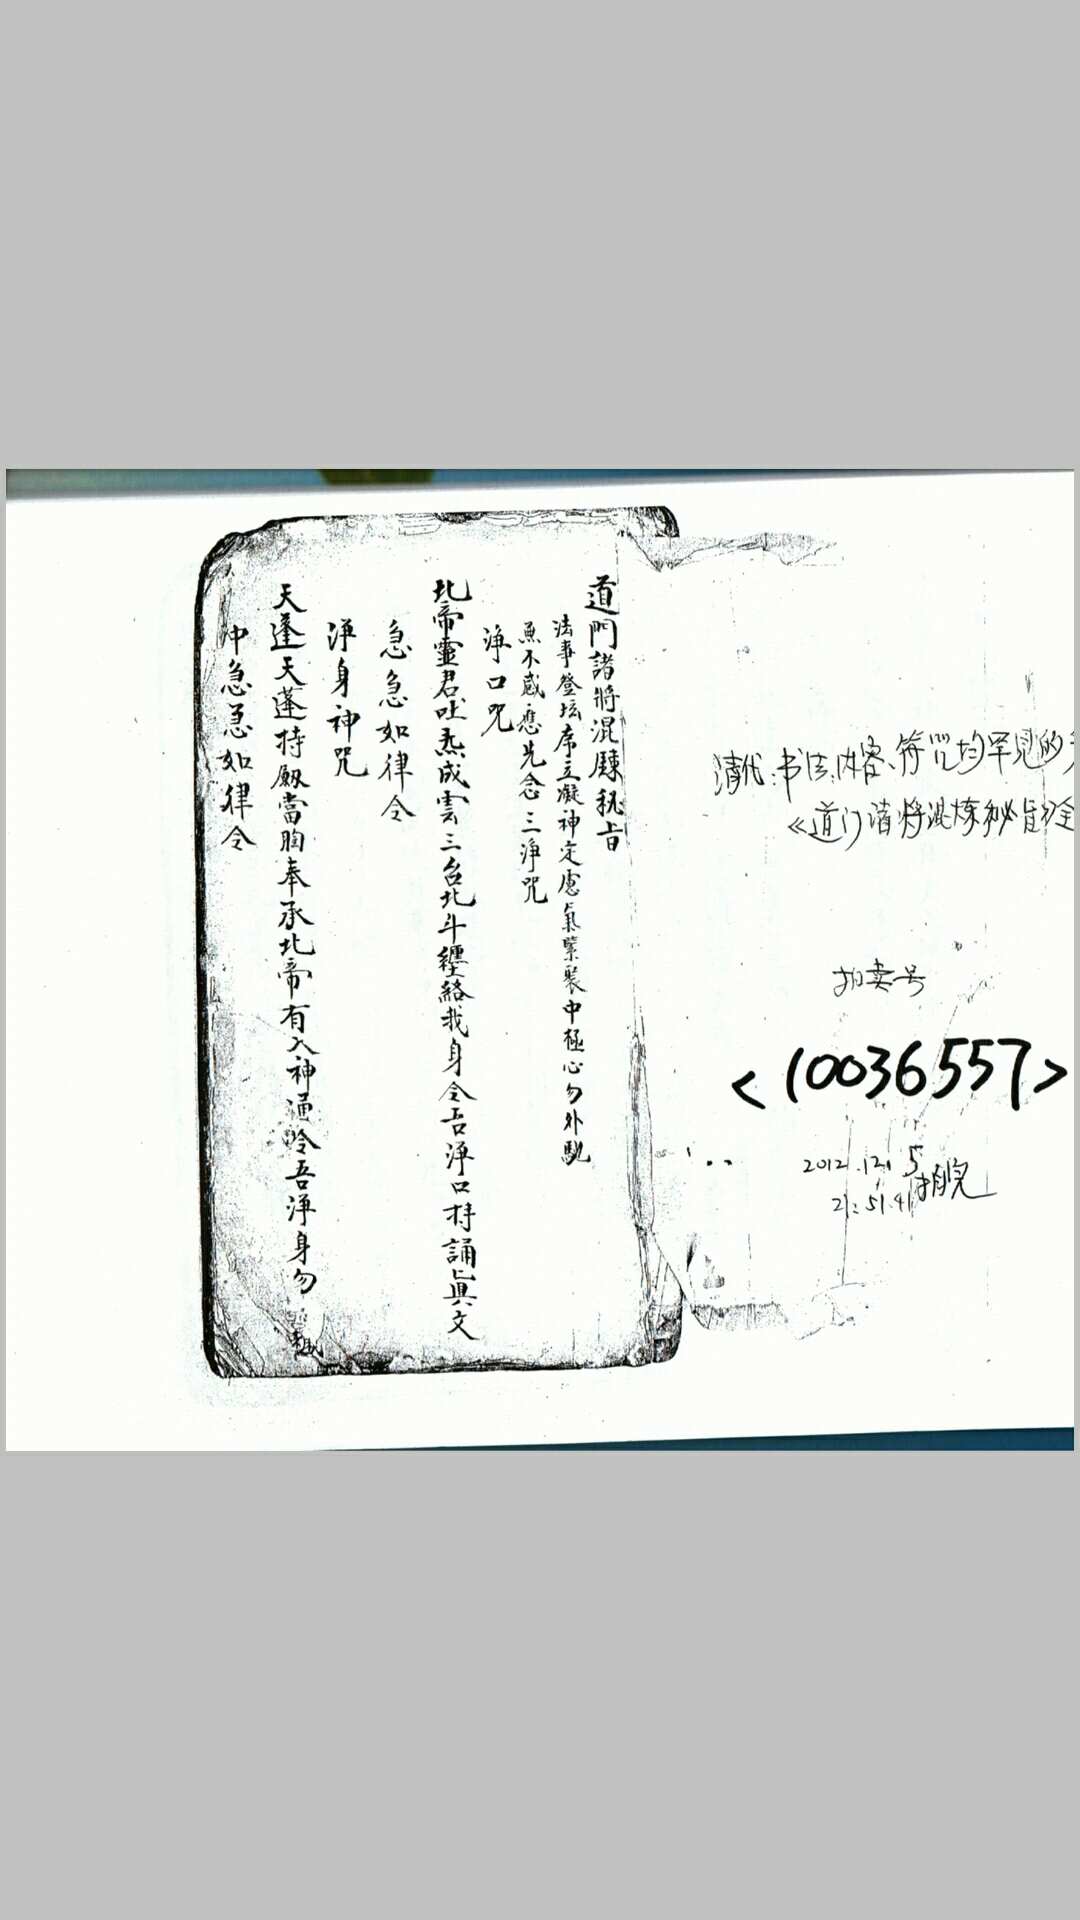 道門諸將混鍊秘旨
法事登坛席立凝神定慮氣聚中極心勿外馳
無不感應先念三淨咒
淨口咒
北帝靈君吐炁成雲三台北斗纏絡我身令吾淨口持誦眞文
急急如律令
淨身神咒
天蓬天蓬持劔當胸奉承北帝有入神通令吾淨身勿
中急急如律令
清代:书法,内容、符咒均罕见的
《道门诸将混炼秘旨》全
拍卖号
<10036557>
2012.12.5
21:51.41拍完